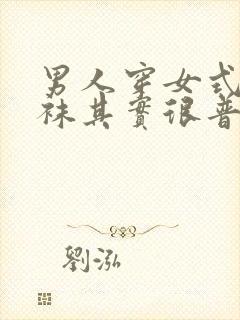 男人穿女式
袜其實很普
劉泓